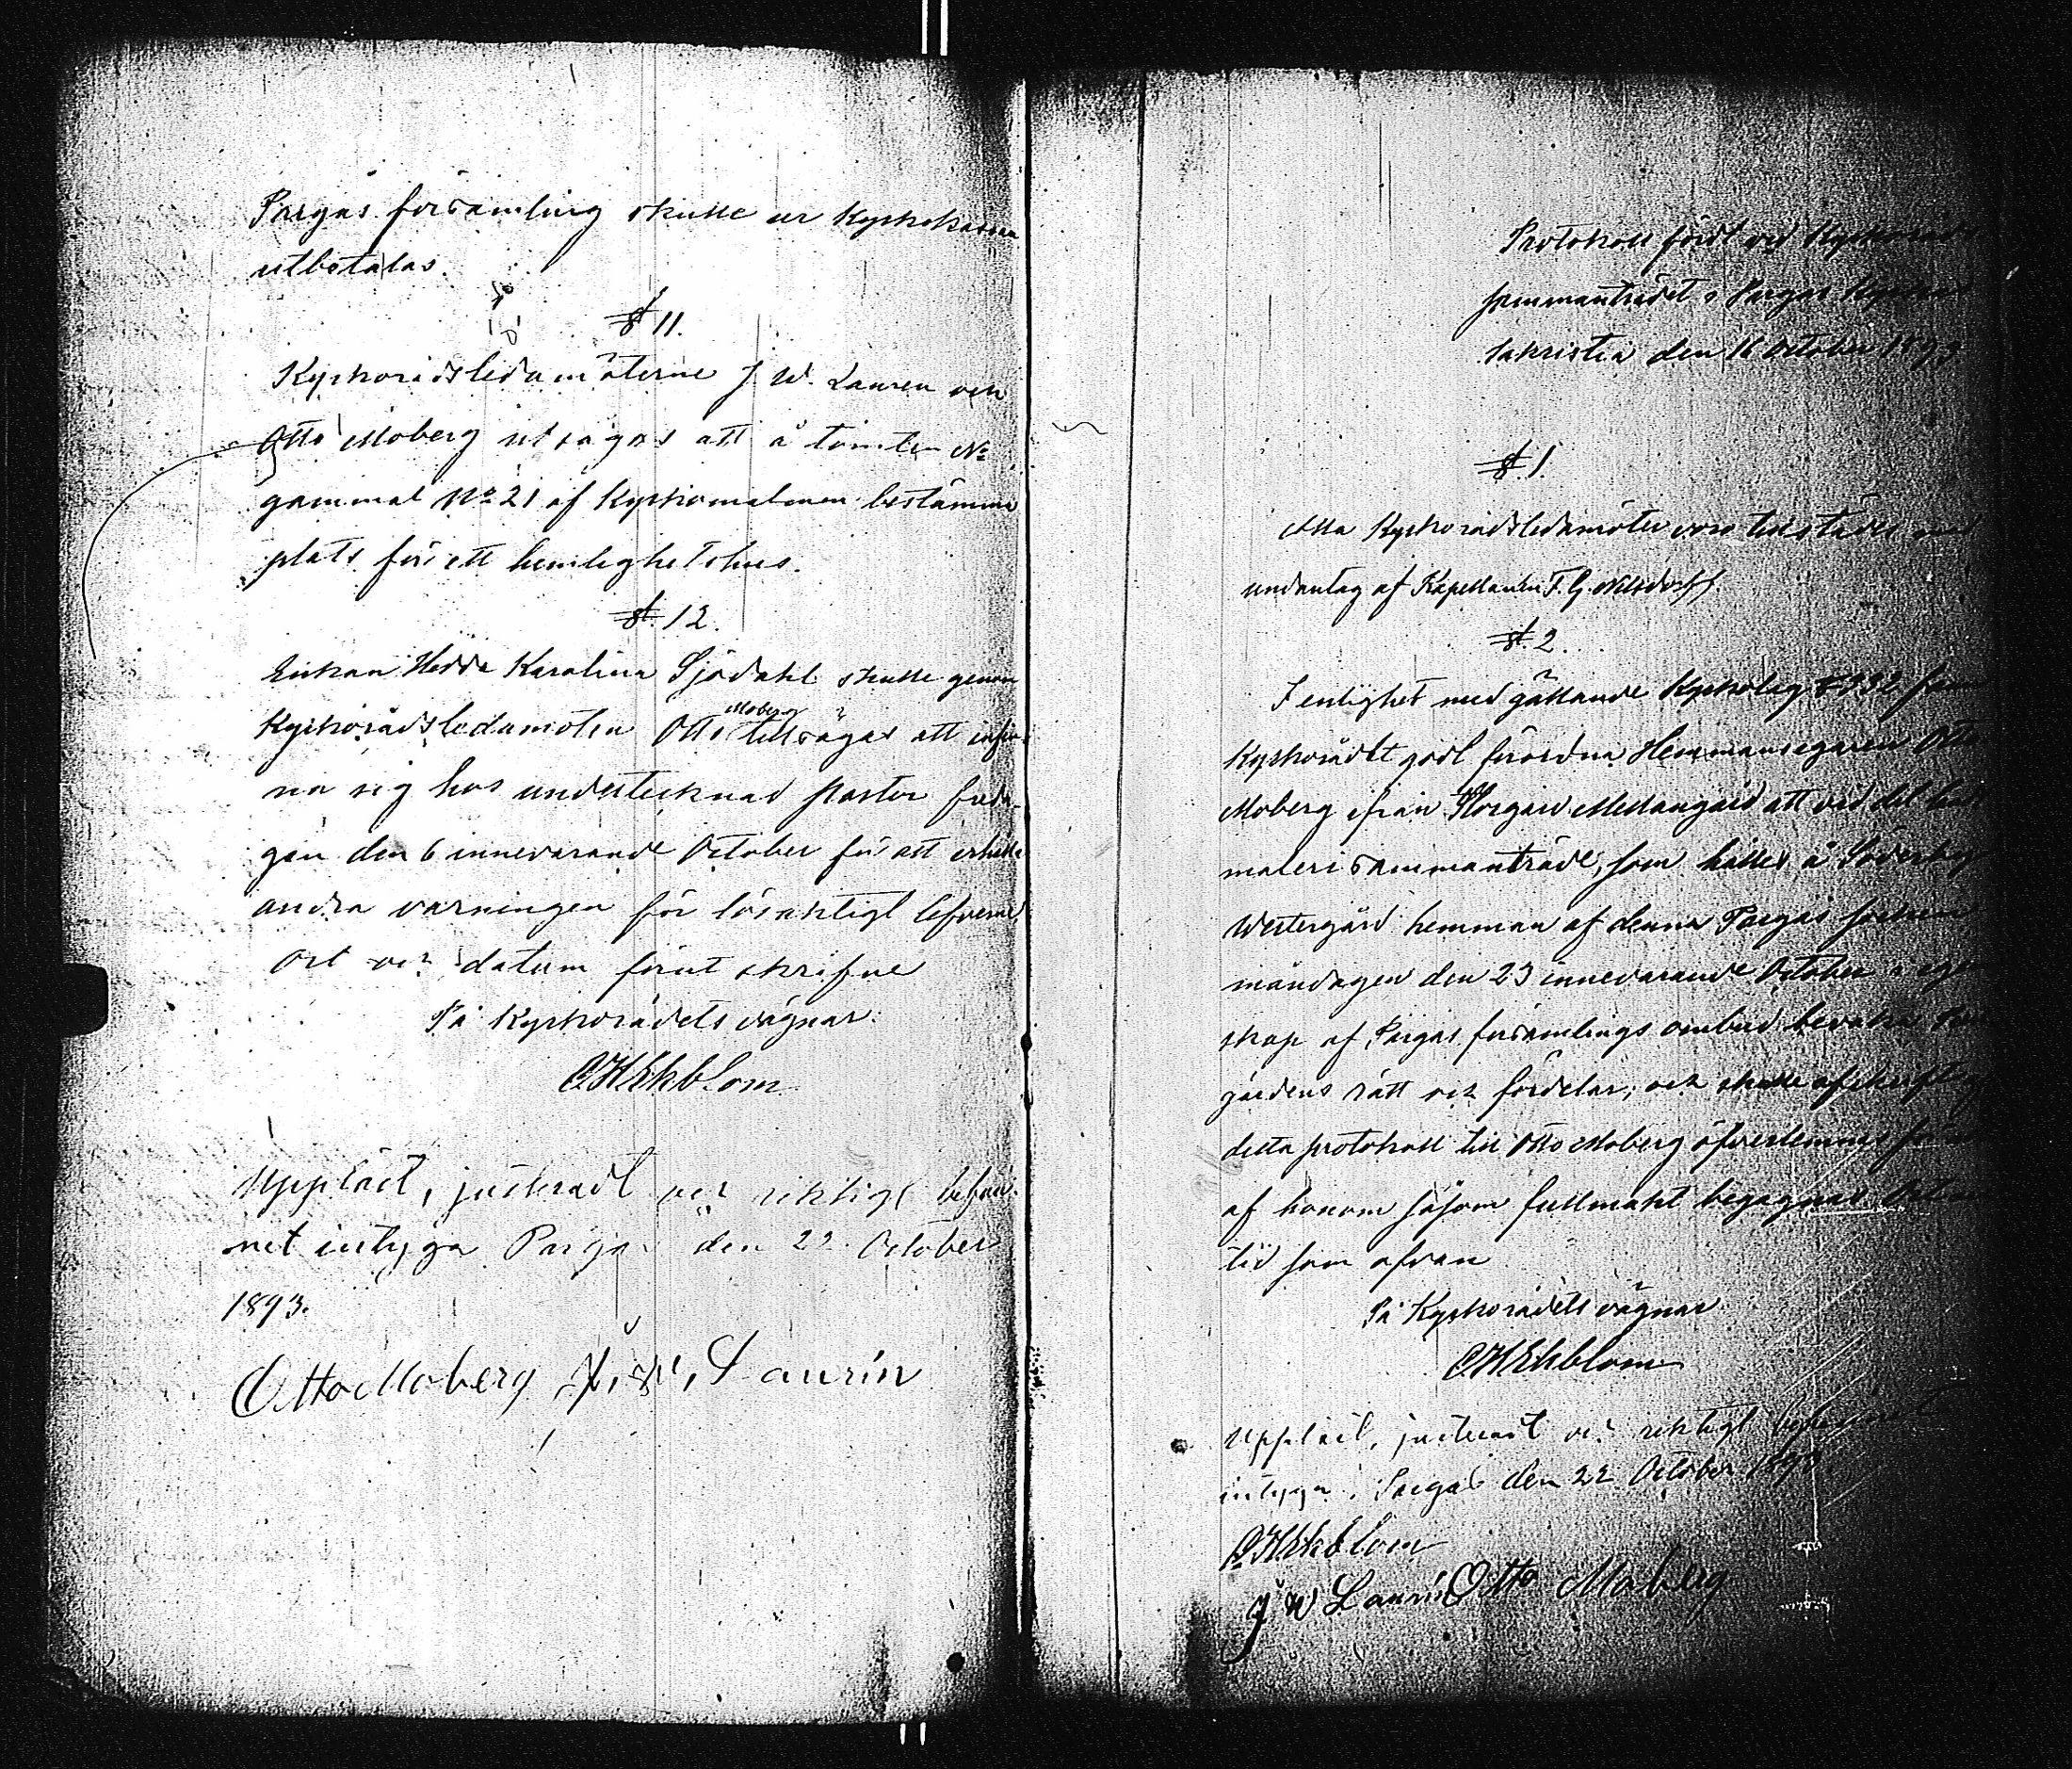 Pargas församling skulle ur Kyrkokassan
utbetalas.
§ 11.
Kyrkorådsledamöterne J. W. Lauren och
Otto Moberg utsågos att å tomten No
gammal No 21 af Kyrkomalmen bestämma
plats för ett hemlighetshus.
§. 12.
Enkan Hedda Karolina Sjödahl skulle genom
Kyrkorådsledamoten Otto Moberg tillsägas att infin-
na sig hos undertecknad Pastor freda-
gen den 6 innevarande October för att erhålla
andra varningen för lösaktigt lefverne.
Ort och datum förut skrifne
På Kyrkorådets vägnar:
C H Ekblom.
Uppläst, justeradt och riktigt befun-
net intyga Pargas den 22 October
1893.
Otto Moberg J. W. Laurín
Protokoll fördt vid Kyrkoråds
sammanträdet i Pargas Kyrkas
sakristia den 16 October 1893
§. 1.
Alla Kyrkorådsledamöter voro tillstädes med
undantag af Kapellanen F. G.
§. 2.
I enlighet med gällande Kyrkolag § 332 fann
Kyrkorådet godt förordna Hemmansegaren Otto
Moberg ifrån Storgård Mellangård att vid det
sammanträde, som hålles å Söderby
Westergård hemman af denna Pargas socken
måndagen den 23 innevarande October i egen
skap af Pargas församlings ombud bevaka
gårdens rätt och fördelar; och skulle afskrift af
detta protokoll till Otto Moberg öfverlemnas för att
af honom såsom fullmakt begagnas. Ort och
tid som ofvan
På Kyrkorådets vägnar
C H Ekblom
Uppläst, justeradt och riktigt befunnet
intyga. Pargas den 22 October 1893.
C H Ekblom
J W Laurín Otto Moberg